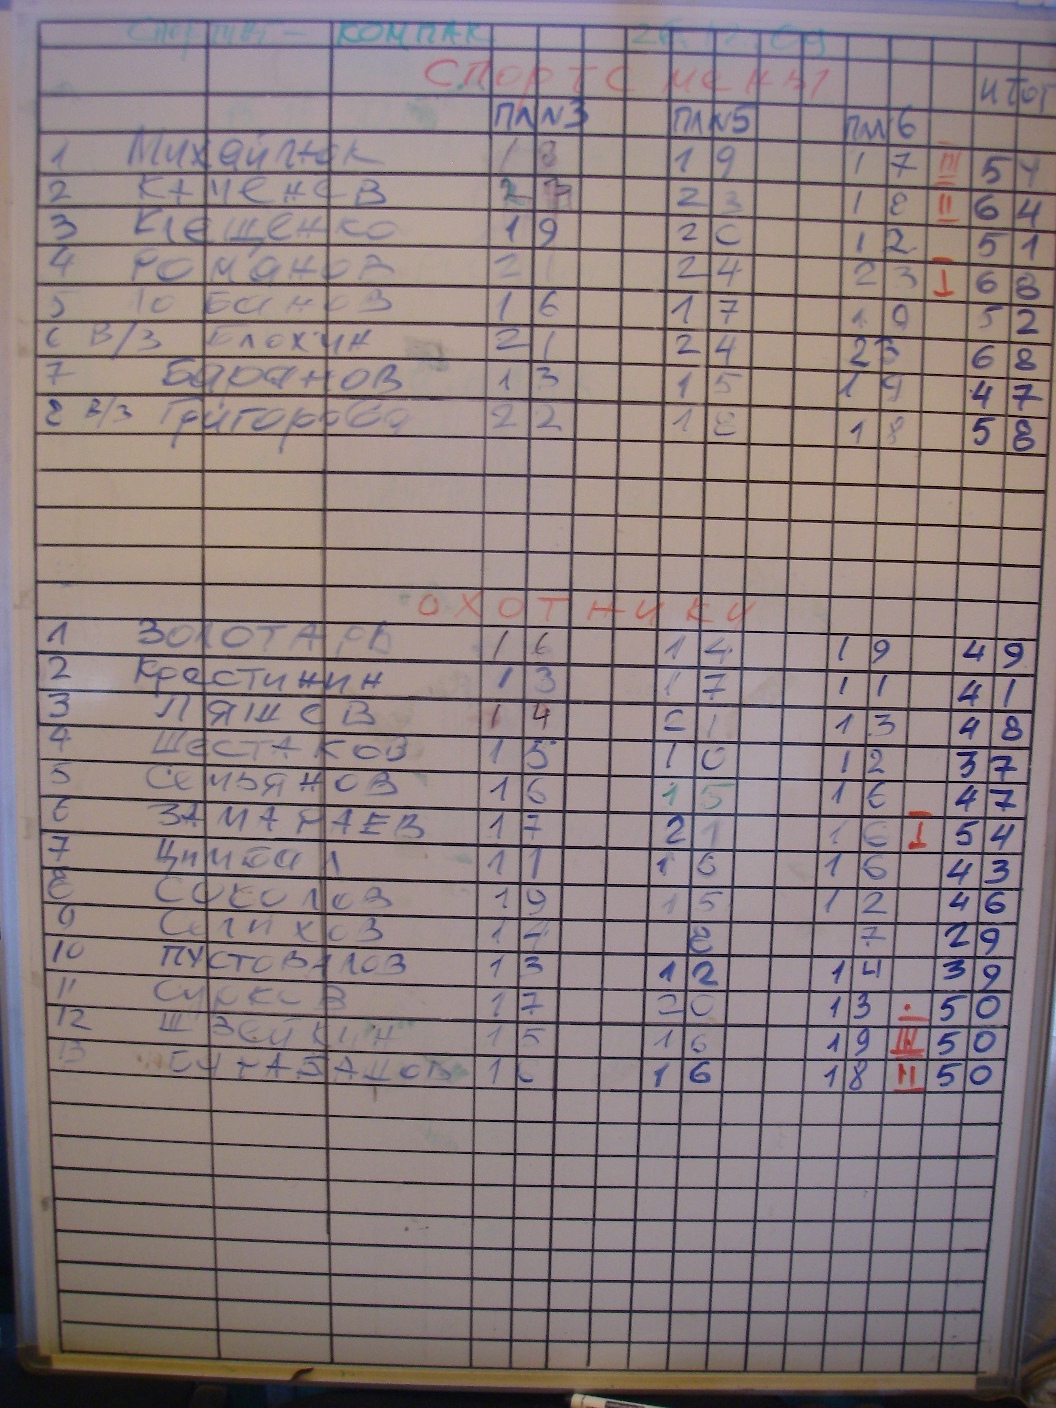 Спортинг - КОМПАК 26.12.09
СПОРТСМЕНЫ
ПЛN3 ПЛN5 ПЛN6 ИТОГ
1 Михайлюк 18 19 17 III 54
2 КАМЕНЕВ 23 23 18 II 64
3 КЛЕЩЕНКО 19 20 12 51
4 РОМАНОВ 21 24 23 I 68
5 16 17 19 52
6 В/З БЛОХИН 21 24 23 68
7 БАРАНОВ 13 15 19 47
8 В/З Григорова 22 18 18 58
ОХОТНИКИ
1 ЗОЛОТАРЬ 16 14 19 49
2 Крестинин 13 17 11 41
3 ЛЯШЕВ 14 21 13 48
4 ШЕСТАКОВ 15 10 12 37
5 СЕМЬЯНОВ 16 15 16 47
6 ЗАМАРАЕВ 17 21 16 I 54
7 Цимбал 11 16 16 43
8 СОКОЛОВ 19 15 12 46
9 14 8 7 29
10 ПУСТОВАЛОВ 13 12 14 39
11 17 20 13 50
12 ШВЕЙКИН 15 16 19 III 50
13 16 18 II 50